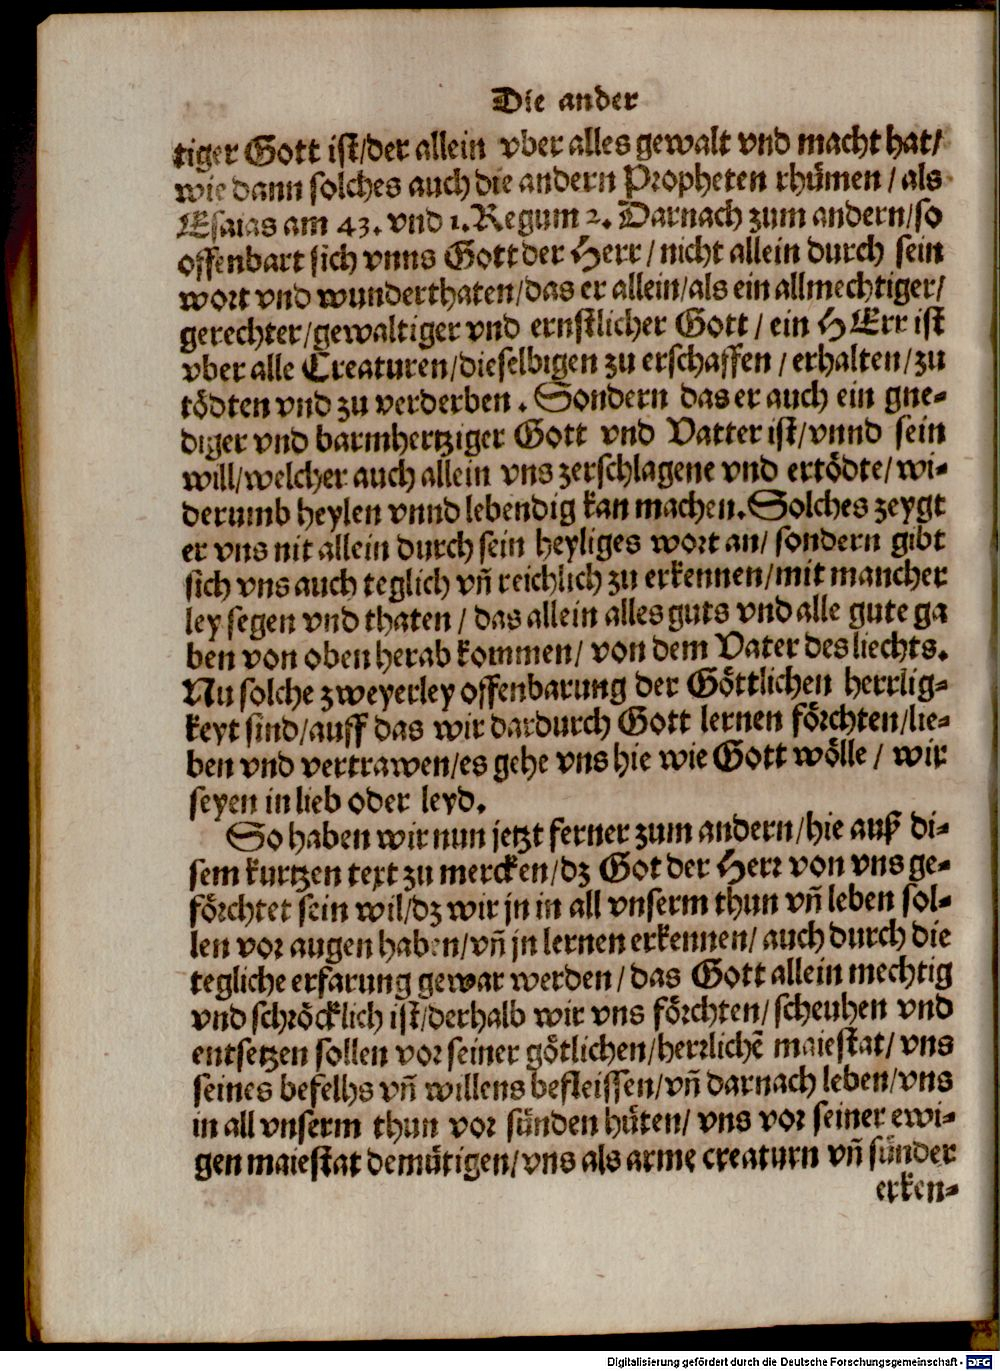 Die ander
tiger Gott ist/der allein vber alles gewalt vnd macht hat/
wie dann solches auch die andern Propheten rhümen / als
Esaias am 43. vnd 1. Regum 2. Darnach zum andern/so
offenbart sich vnns Gott der Herr / nicht allein durch sein
wort vnd wunderthaten/das er allein/als ein allmechtiger/
gerechter/gewaltiger vnd ernstlicher Gott / ein HErr ist
vber alle Creaturen/dieselbigen zu erschaffen / erhalten/zu
tödten vnd zu verderben . Sondern das er auch ein gne-
diger vnd barmhertziger Gott vnd Vatter ist/vnnd sein
will/welcher auch allein vns zerschlagene vnd ertödte/wi-
derumb heylen vnnd lebendig kan machen. Solches zeygt
er vns nit allein durch sein heyliges wort an/ sondern gibt
sich vns auch teglich vñ reichlich zu erkennen/mit mancher
ley segen vnd thaten / das allein alles guts vnd alle gute ga
ben von oben herab kommen/ von dem Vater des liechts.
Nu solche zweyerley offenbarung der Göttlichen herrlig-
keyt sind/auff das wir dardurch Gott lernen förchten/lie-
ben vnd vertrawen/es gehe vns hie wie Gott wölle / wir
seyen in lieb oder leyd.
So haben wir nun jetzt ferner zum andern/hie auß di-
sem kurtzen text zu mercken/dz Got der Herr von vns ge-
förchtet sein wil/dz wir jn in all vnserm thun vñ leben sol-
len vor augen haben/vñ jn lernen erkennen/ auch durch die
tegliche erfarung gewar werden / das Gott allein mechtig
vnd schröcklich ist/derhalb wir vns förchten/ scheuhen vnd
entsetzen sollen vor seiner götlichen/herrlichẽ maiestat/ vns
seines befelhs vñ willens befleissen/vñ darnach leben/vns
in all vnserm thun vor sünden hüten/ vns vor seiner ewi-
gen maiestat demütigen/vns als arme creaturn vñ sünder
erken-
Digitalisierung gefördert durch die Deutsche Forschungsgemeinschaft - DFG